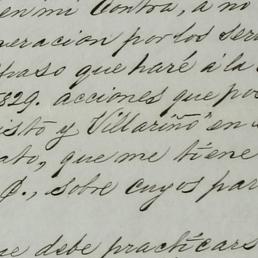 en mi contra, a no
neracion por los ser
paso que haré á la
829. acciones que po
isto y Villariño" en
ato, que me tiene
C., sobre cuyos par
ue debe practicars